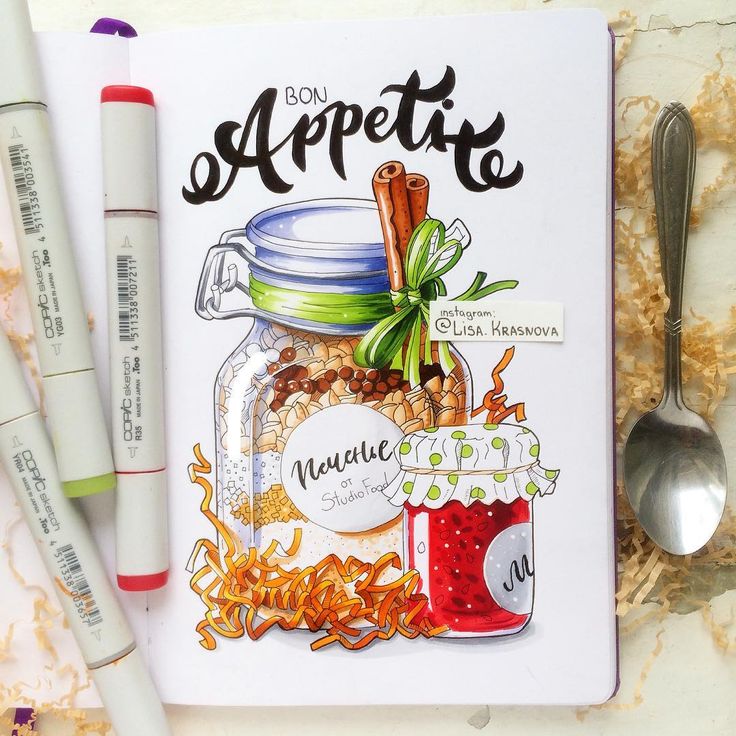 BON
Appetit
instagram:
@LISA.KRASNOVA
Печенье
от
StudioFood
M
COPIC sketch
MADE IN JAPAN .Too
YG03
4 511338 003541
COPIC sketch
MADE IN JAPAN .Too
R35
4 511338 007211
COPIC sketch
MADE IN JAPAN .Too
YR04
4 511338 003657